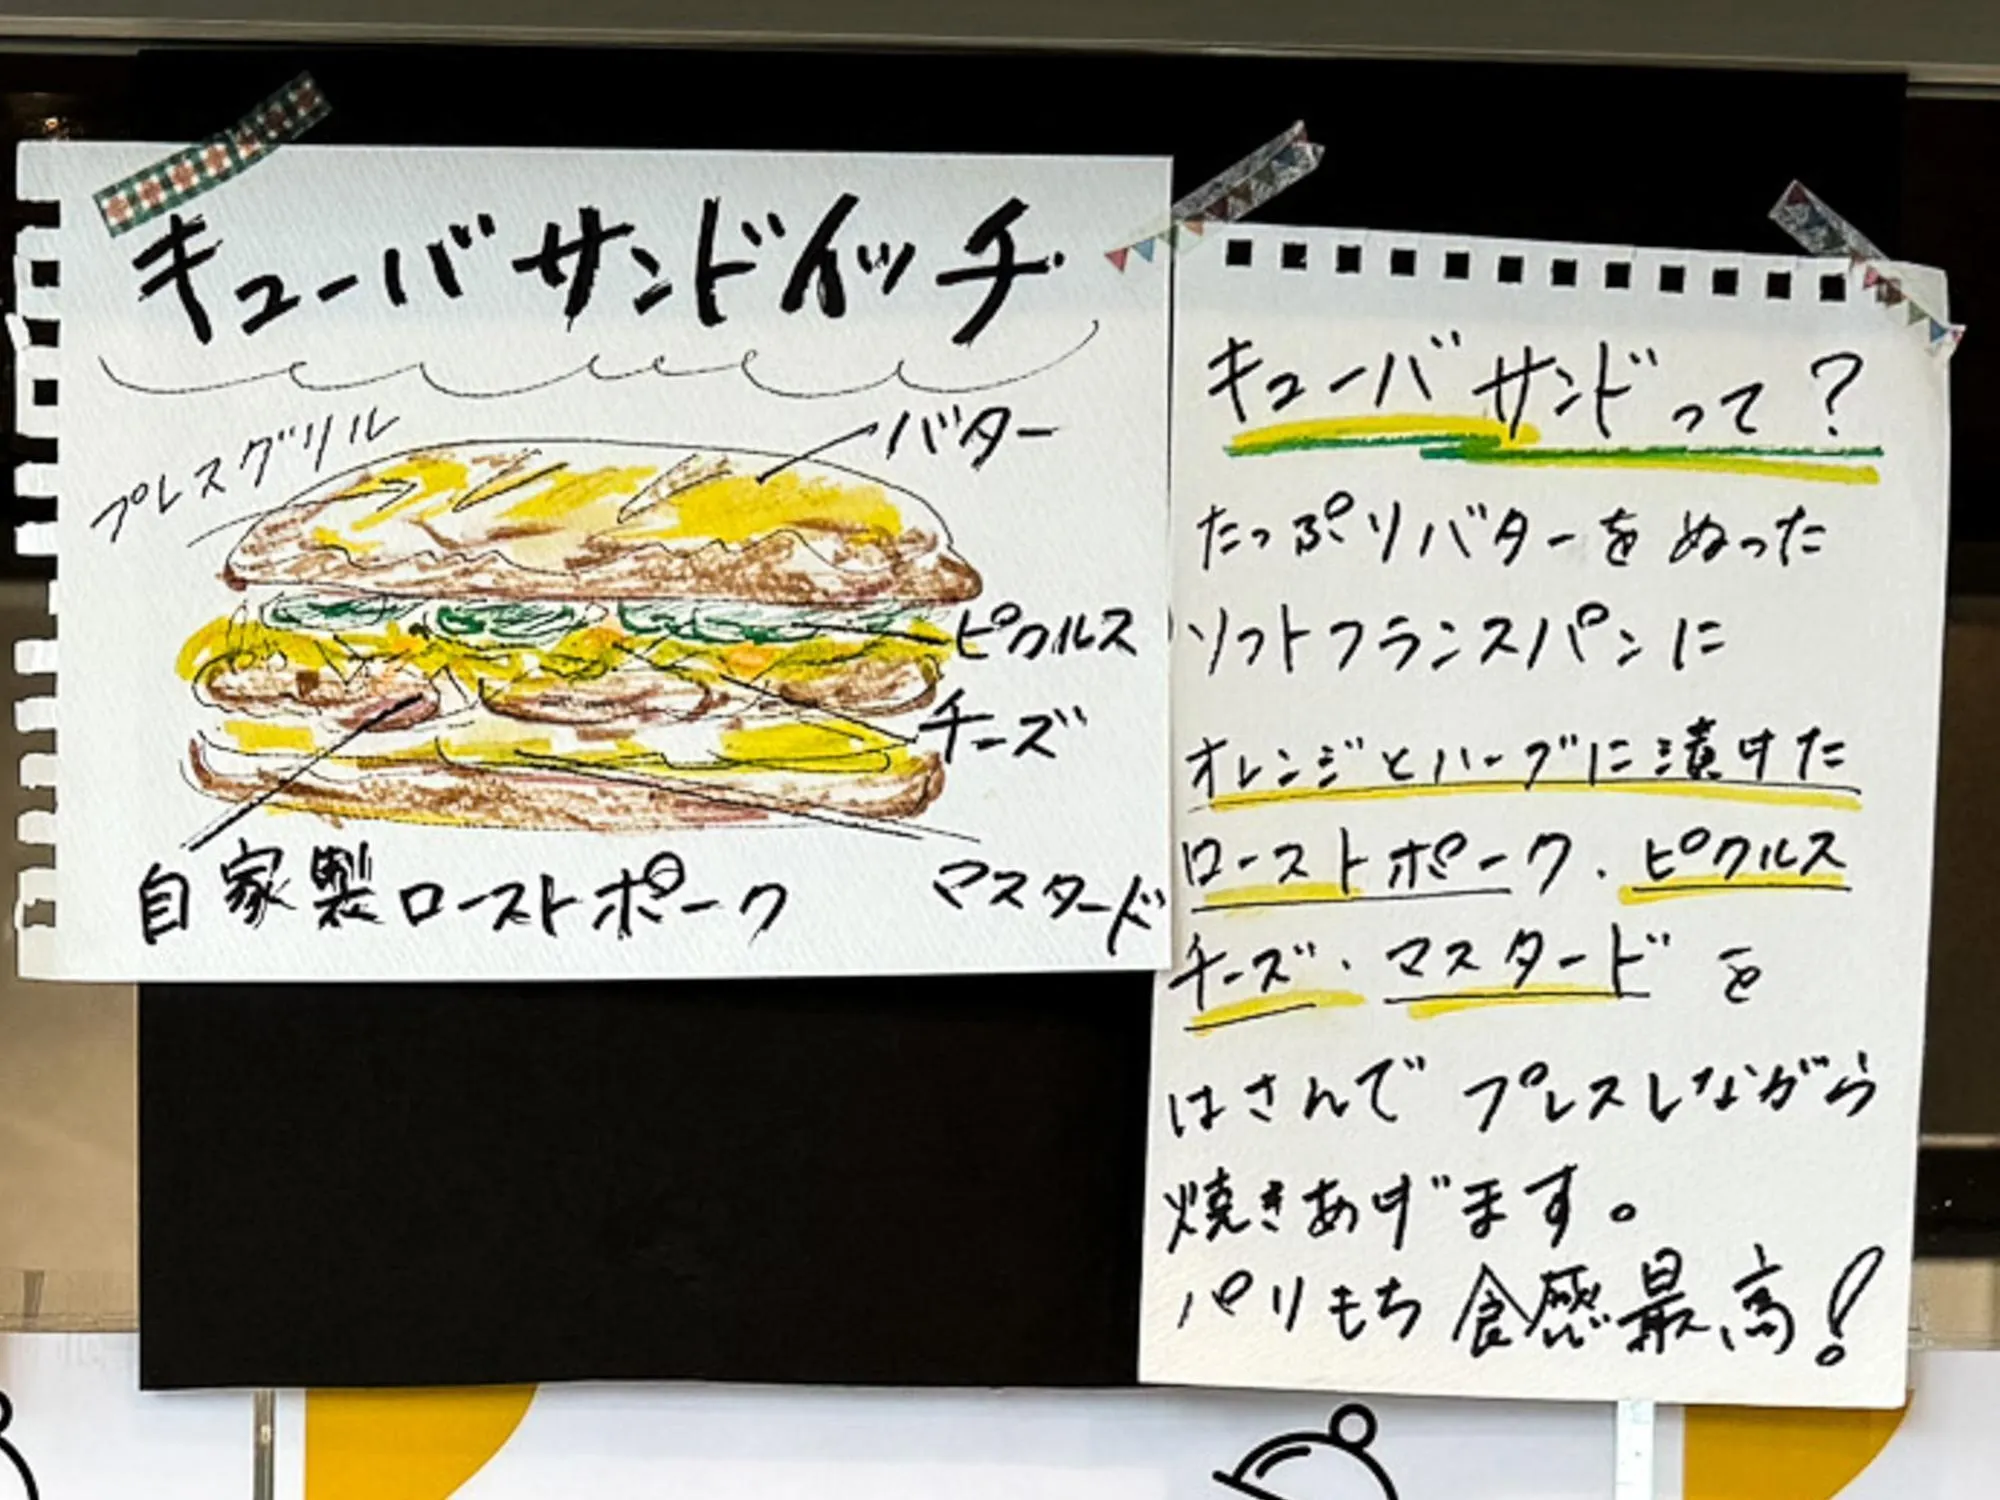 キューバサンドイッチ
プレスグリル
バター
ピクルス
チーズ
自家製ローストポーク
マスタード
キューバサンドって?
たっぷりバターをぬった
ソフトフランスパンに
オレンジとハーブに漬けた
ローストポーク・ピクルス
チーズ・マスタードを
はさんでプレスしながら
焼きあげます。
パリもち食感最高!